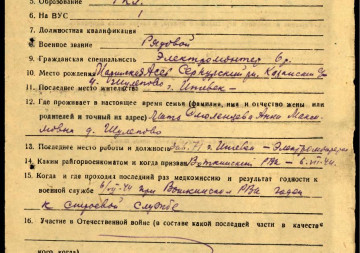 5. Образование
6. На ВУС 1
7. Должностная квалификация
8. Военное звание Рядовой
9. Гражданская специальность Электромонтер 6 р.
10. Место рождения Марийская АССР Сернурский р-н
11. Последнее место жительства г. Ижевск -
12. Где проживает в настоящее время семья (фамилия, имя и отчество жены или
родителей и точный их адрес) Мать Смоленцева Анна
мовна д. Шулепово
13. Последнее место работы и должность г. Ижевск - Электромонтер
14. Каким райгорвоенкоматом и когда призван Воткинский РВК - 6.VII-44.
15. Когда и где проходил последний раз медкомиссию и результат годности к
военной службе 6/VII-44 при Воткинском РВК годен
к строевой службе
16. Участие в Отечественной войне (в составе какой последней части и качестве
кого, когда)